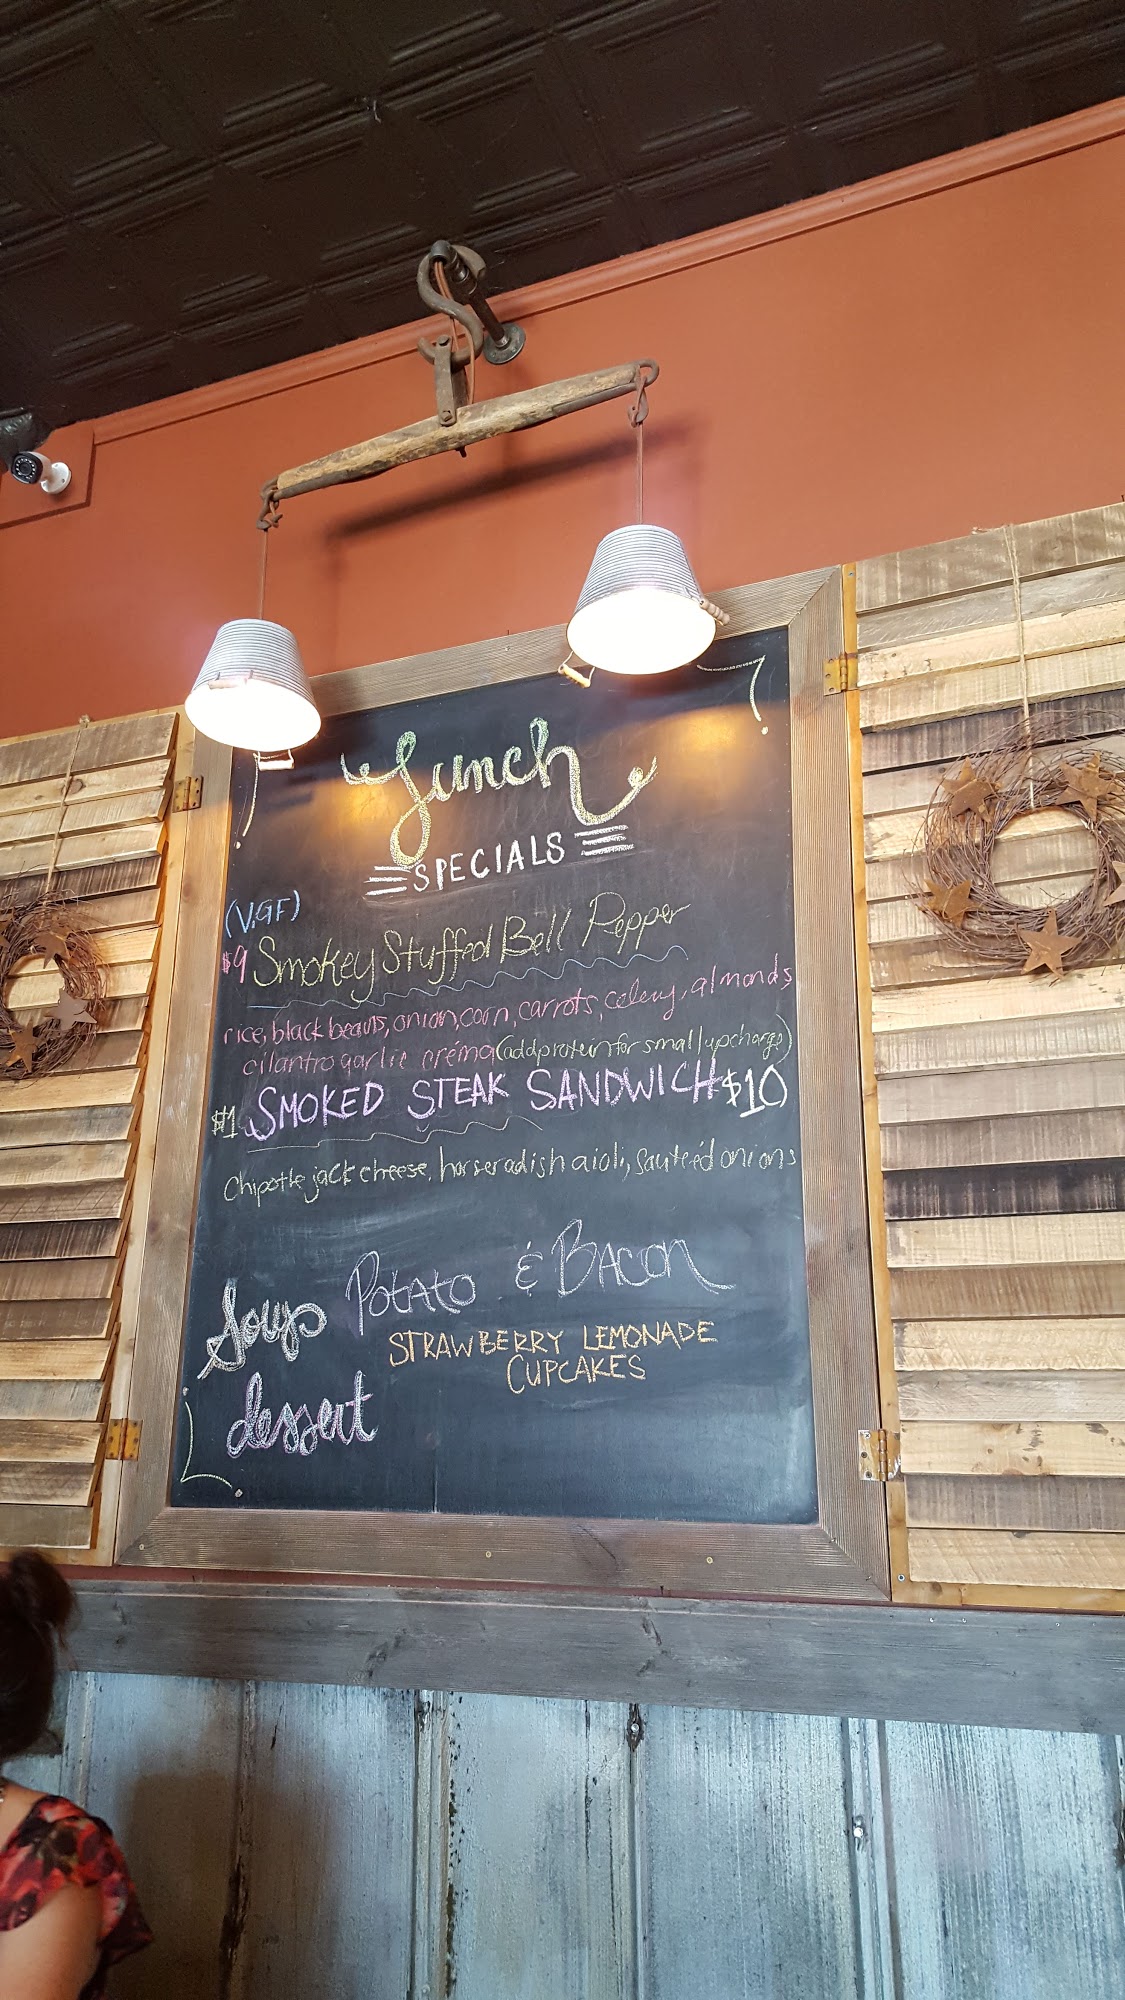 Lunch
SPECIALS
(V.GF)
$9 Smokey Stuffed Bell Pepper
rice, black beans, onion, corn, carrots, celery, almonds,
cilantro garlic créma (add protein for small upcharge)
$1 SMOKED STEAK SANDWICH $10
chipotle jack cheese, horseradish aioli, sauteéd onions
Soup Potato & BACON
STRAWBERRY LEMONADE
CUPCAKES
dessert